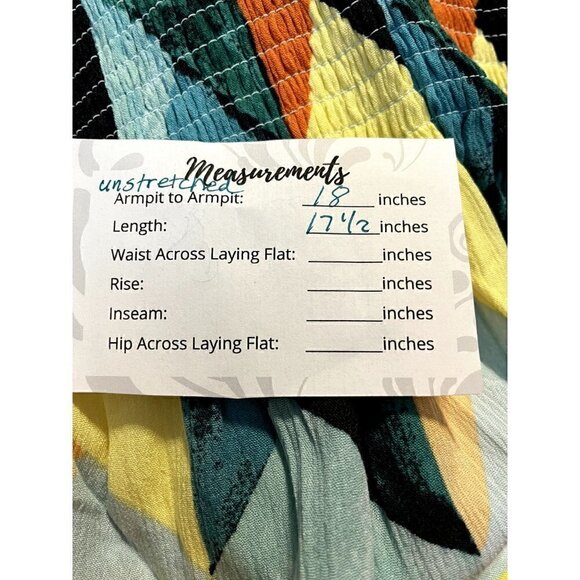 Measurements
unstretched
Armpit to Armpit: 18 inches
Length: 17 1/2 inches
Waist Across Laying Flat: ________ inches
Rise: ________ inches
Inseam: ________ inches
Hip Across Laying Flat: ________ inches